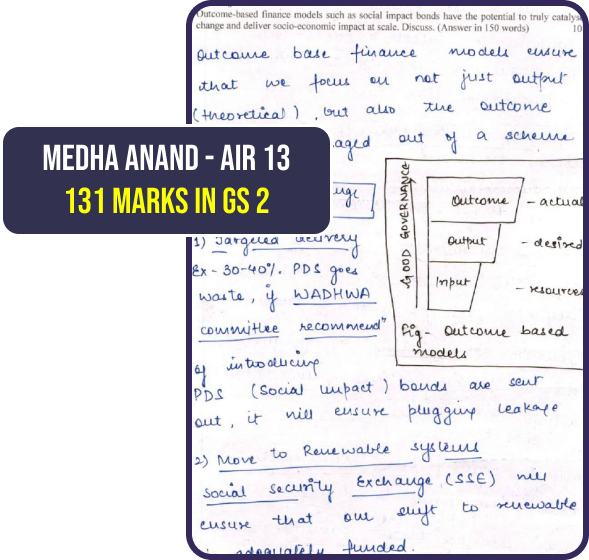 Outcome-based finance models such as social impact bonds have the potential to truly catalys
change and deliver socio-economic impact at scale. Discuss. (Answer in 150 words)
10
Outcome base finance models ensure
that we focus on not just output
(theoretical), but also the outcome
aged out of a scheme
MEDHA ANAND - AIR 13
131 MARKS IN GS 2
1) Targeted delivery
Ex - 30-40% PDS goes
waste, if WADHWA
committee recommend"
of introducing
PDS (Social impact) bonds are sent
out, it will ensure plugging leakage
GOOD GOVERNANCE
Outcome - actual
Output - desired
Input - resources
Fig - Outcome based
models
2) Move to Renewable systems
Social security Exchange (SSE) will
ensure that our shift to renewable
adequately funded.